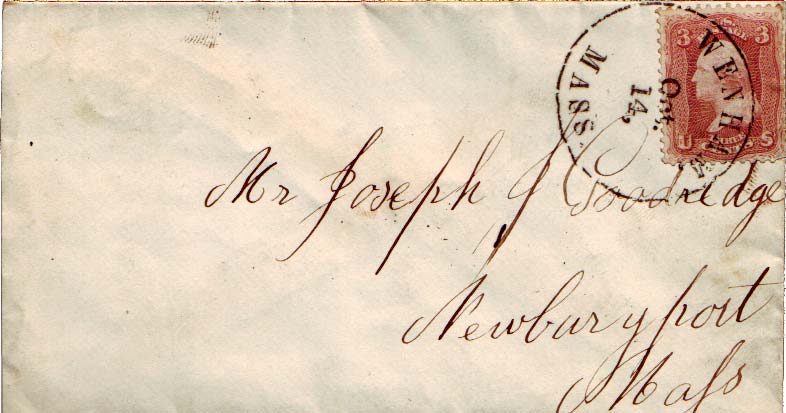 3 3
U S
WENHAM
MASS
Oct.
14,
Mr Joseph J Goodredge
Newburyport
Mass